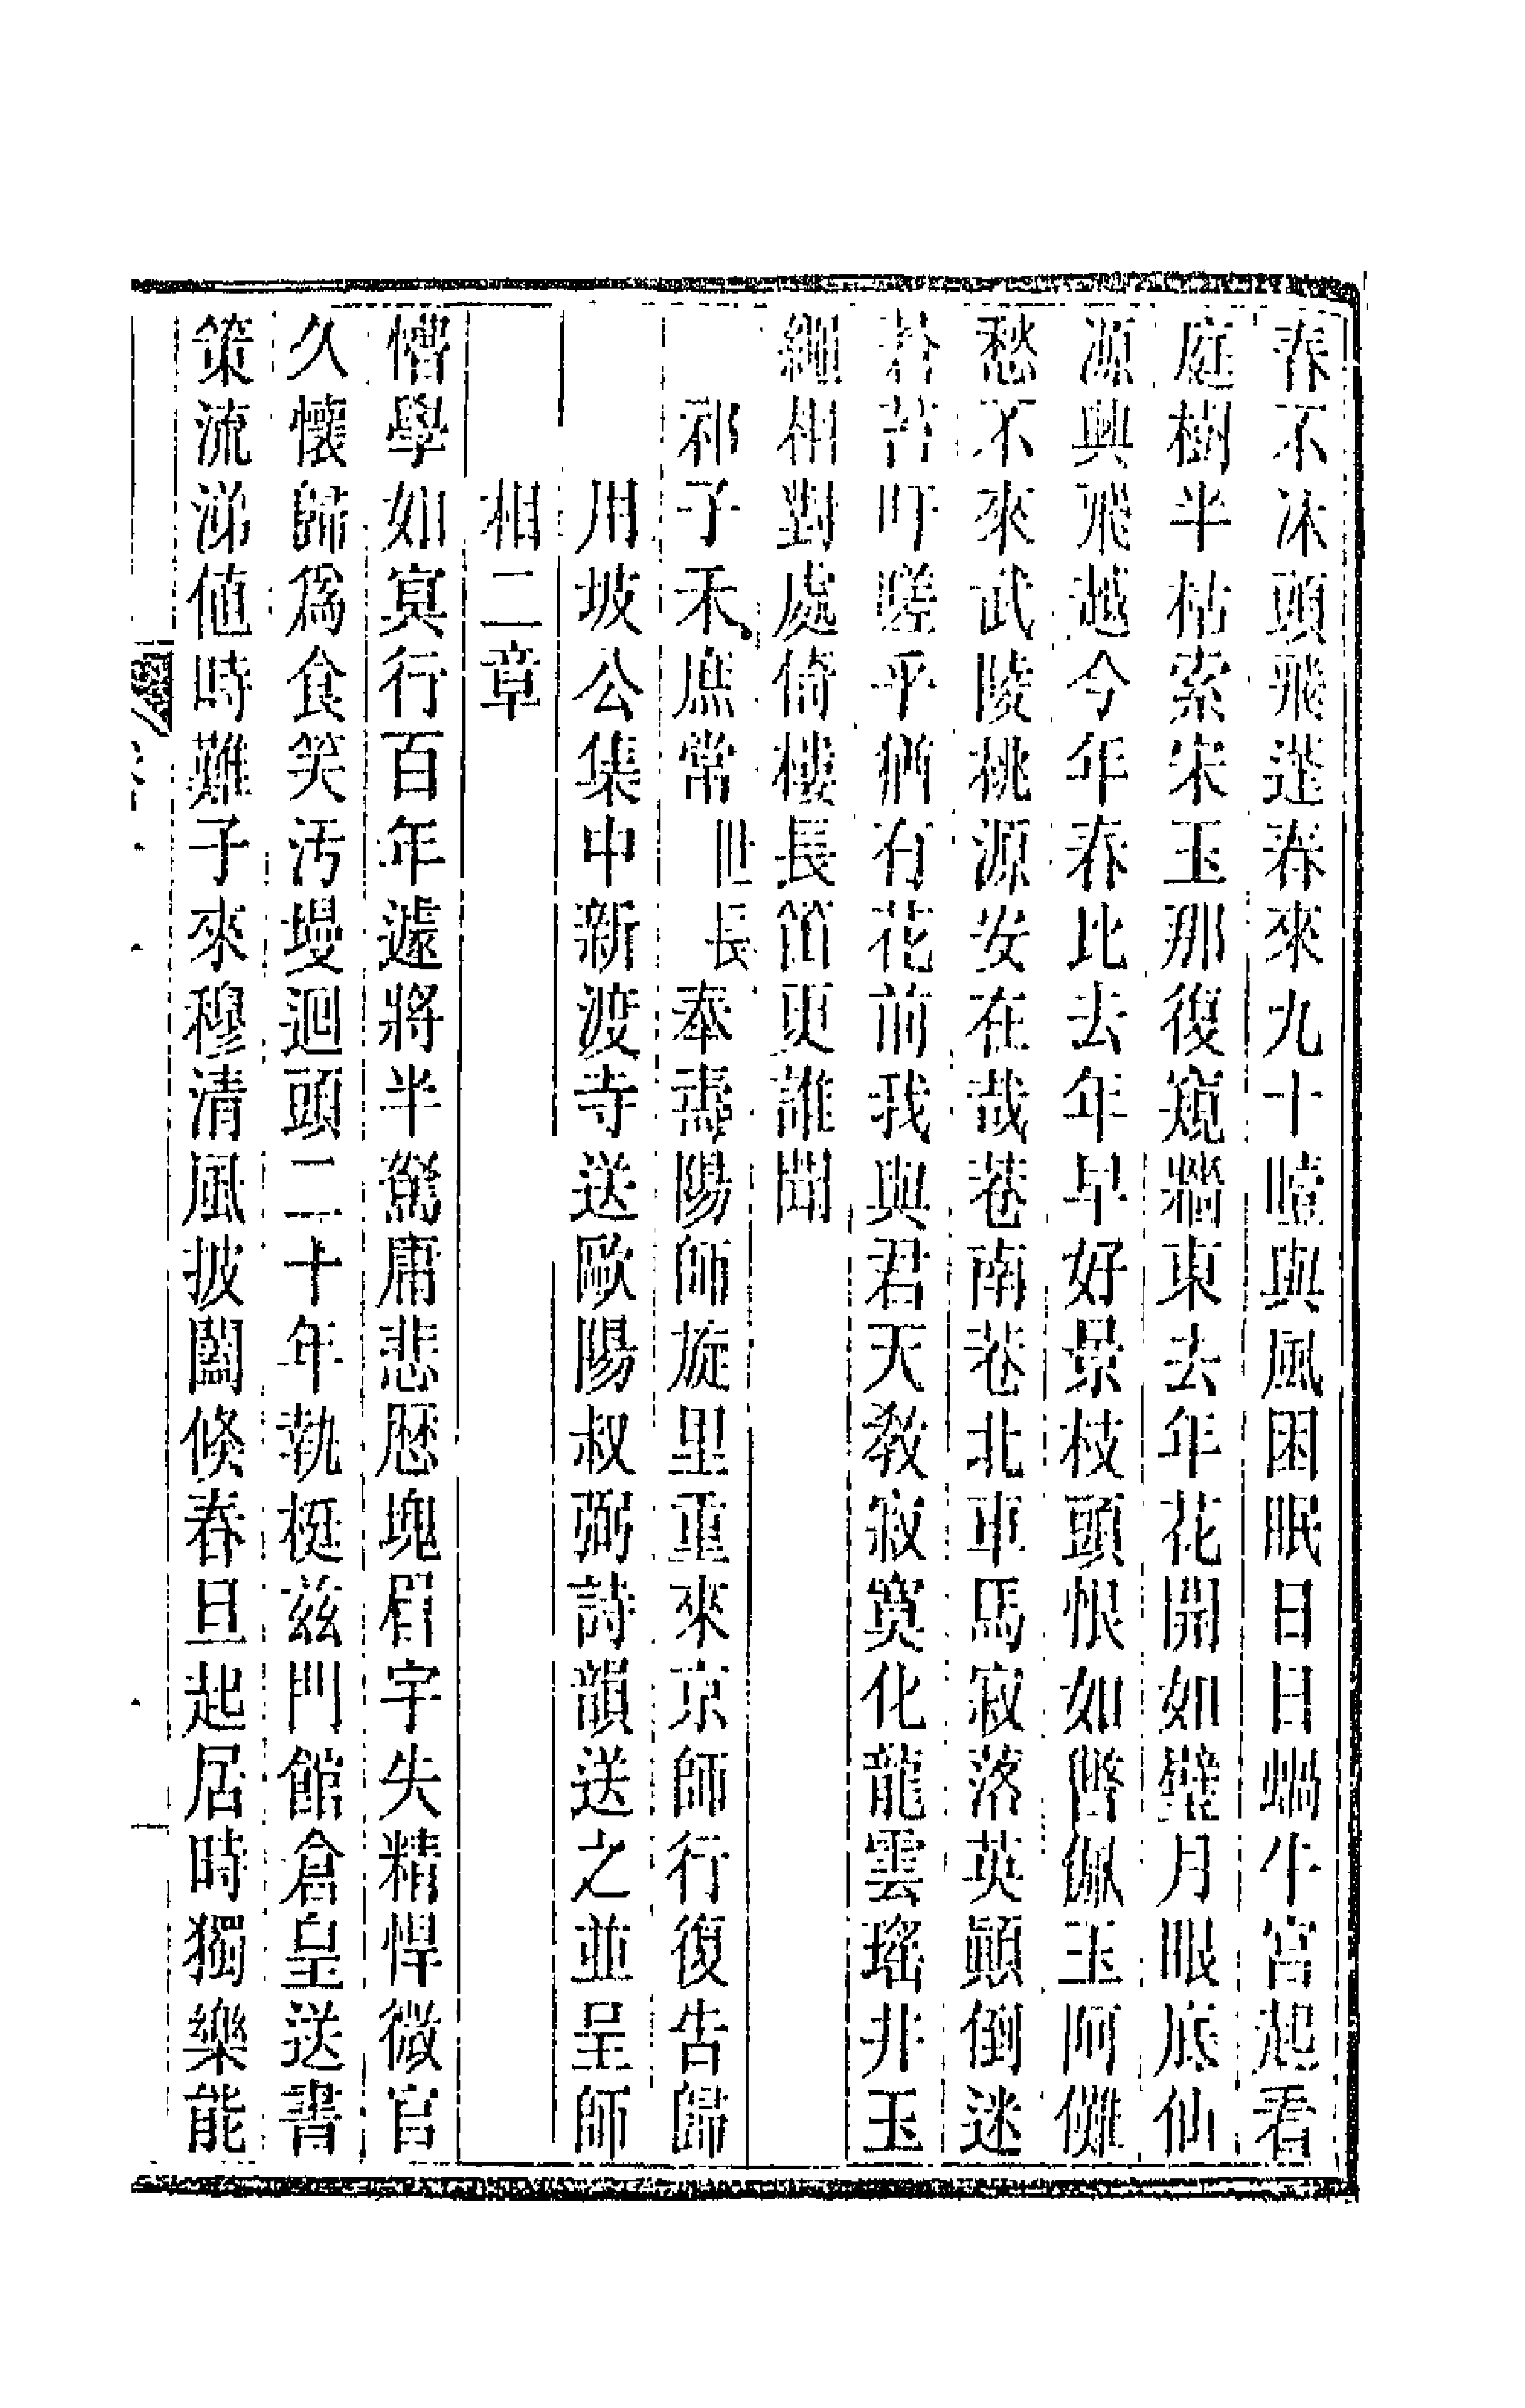 春不沐頭飛蓬春來九十曀與風困眠日日蝸牛宮起看
庭樹半枯索宋玉那復窺牆東去年花開如璧月眼底仙
源興飛越今年春比去年早好景枝頭恨如瞥佩玉阿儺
愁不來武陵桃源安在哉巷南巷北車馬寂落英顚倒迷
苔吁嗟乎猶有花前我與君天敎寂寞化龍雲瑤井玉
繩相對處倚樓長笛更誰聞
祁子禾庶常世長奉壽陽師旋里重來京師行復告歸
用坡公集中新渡寺送歐陽叔弼詩韻送之並呈師
相二章
懵學如冥行百年遽將半駑庸悲歷塊眉宇失精悍微官
久懷歸爲食笑汚墁迴頭二十年執梃兹門館倉皇送書
策流涕値時難子來穆清風披闥倏春旦起居時獨樂能